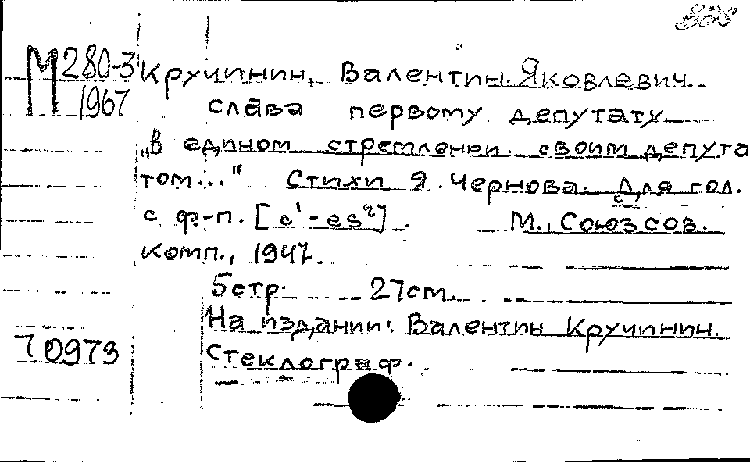 М 280-3 Кручинин, Валентин Яковлевич.
1967 Слава первому депутату
„В едином стремлении своим депута
том..." Стихи Я. Чернова. Для гол.
с ф-п. [c¹-es²]. М., Союз сов.
комп., 1947.
5 стр. 27 см.
На издании: Валентин Кручинин.
70973 Стеклограф.